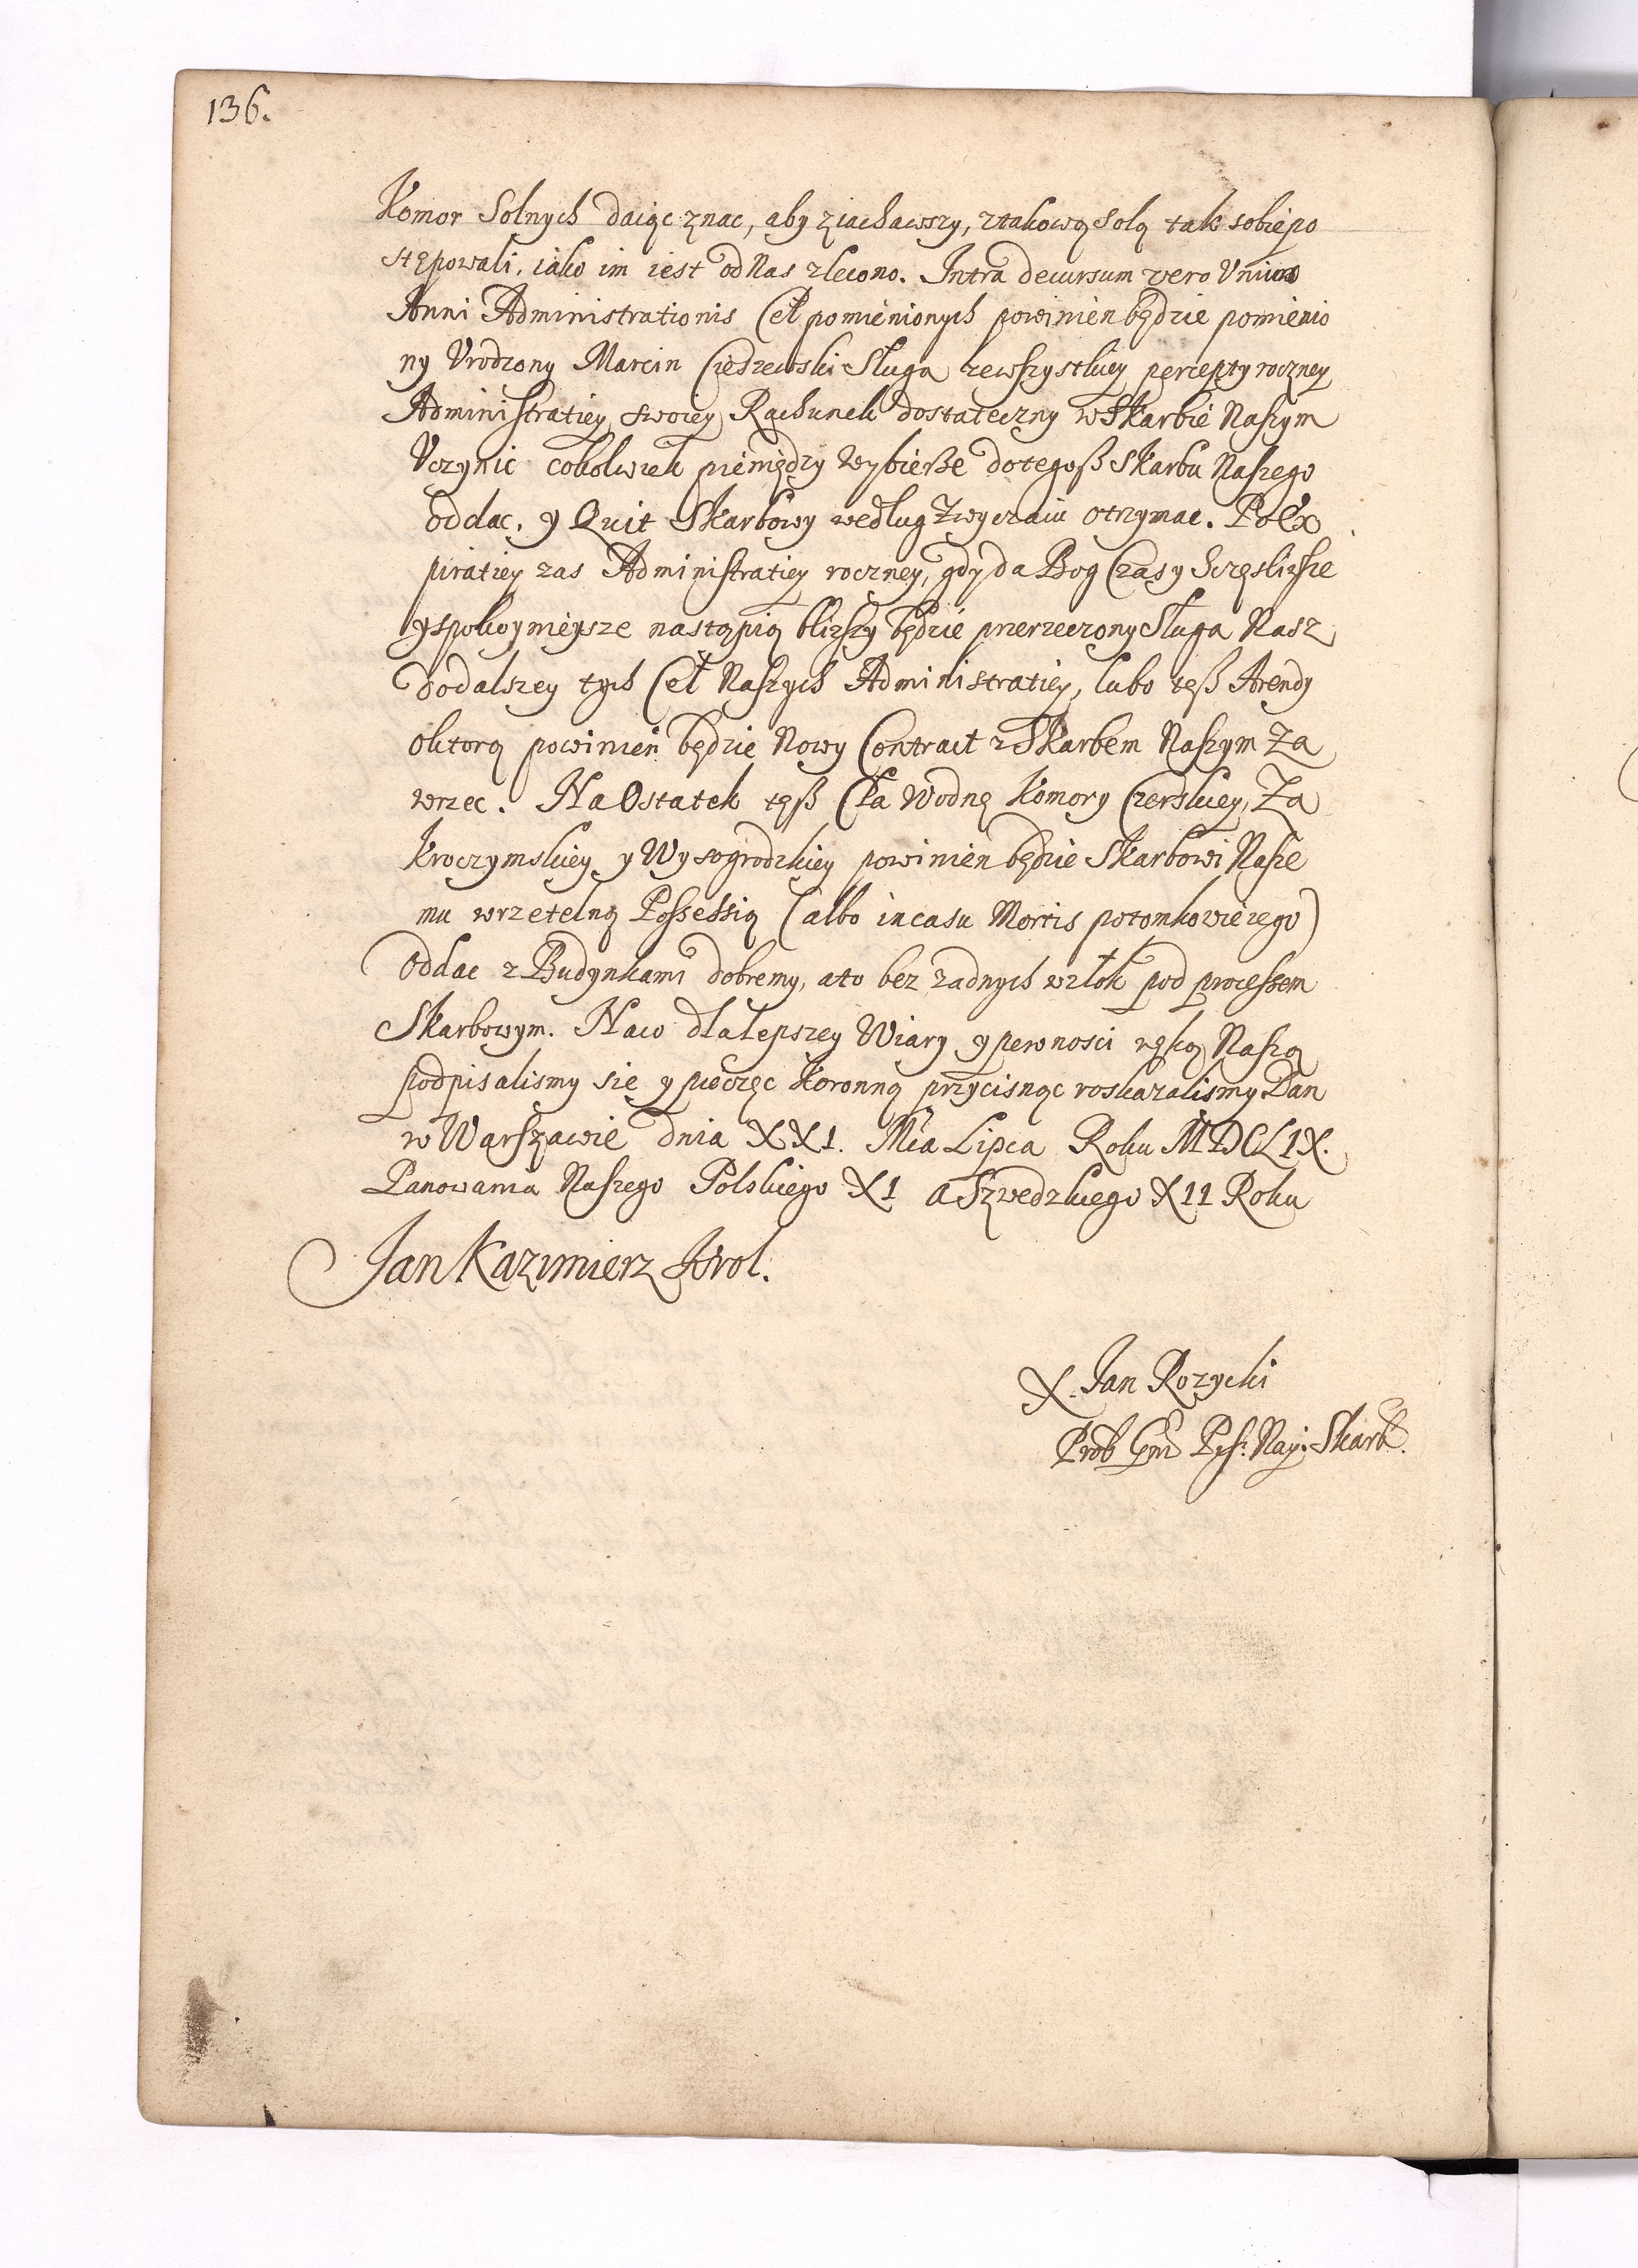 136.
Komor Solnych daiąc znac, aby ziachawszy, ztakową solą tak sobie po
stępowali, iako im iest od Nas zlecono. Intra decursum vero Vnius
Anni Administrationis Ceł pomienionych powinien będzie pomienio
ny Vrodzony Marcin Czedzewski Sługa zewszystkiey percepty roczney
Administratiey swoiey Rachunek dostateczny w Skarbie Naszym
Vczynic cokolwiek pieniędzy wybieße do tegoß Skarbu Naszego
oddac, y Quit Skarbowy według Zwyczaiu otrzymac. Po Ex
piratiey zas Administratiey roczney, gdy da Bog Czasy Sczęsliwsze
y spokoynieysze nastąpią blizszy będzie przerzeczony Sługa Nasz
do dalszey tych Ceł Naszych Administratiey, lubo teß Arendy
o ktorą powinien będzie Nowy Contract z Skarbem Naszym Za
wrzec. Na Ostatek teß Cła Wodne Komory Czerskiey, Za
kroczymskiey y Wysogrodzkiey powinien będzie Skarbowi Nasze
mu wrzetelną Possessią (albo in casu Mortis potomkowie iego)
Oddac z Budynkami dobremy, a to bez zadnych wzłok pod processem
Skarbowym. Na co dla lepszey Wiary y pewnosci ręką Naszą
podpisalismy się y pieczęc Koronną przycisnąc roskazalismy Dan
w Warszawie dnia XXI. Mca Lipca Roku MDCLIX.
Panowania Naszego Polskiego XI a Szwedzkiego XII Roku
Jan Kazimierz Krol.
X. Jan Rozycki
Prob Gnı Pss: Nay: Skarb.